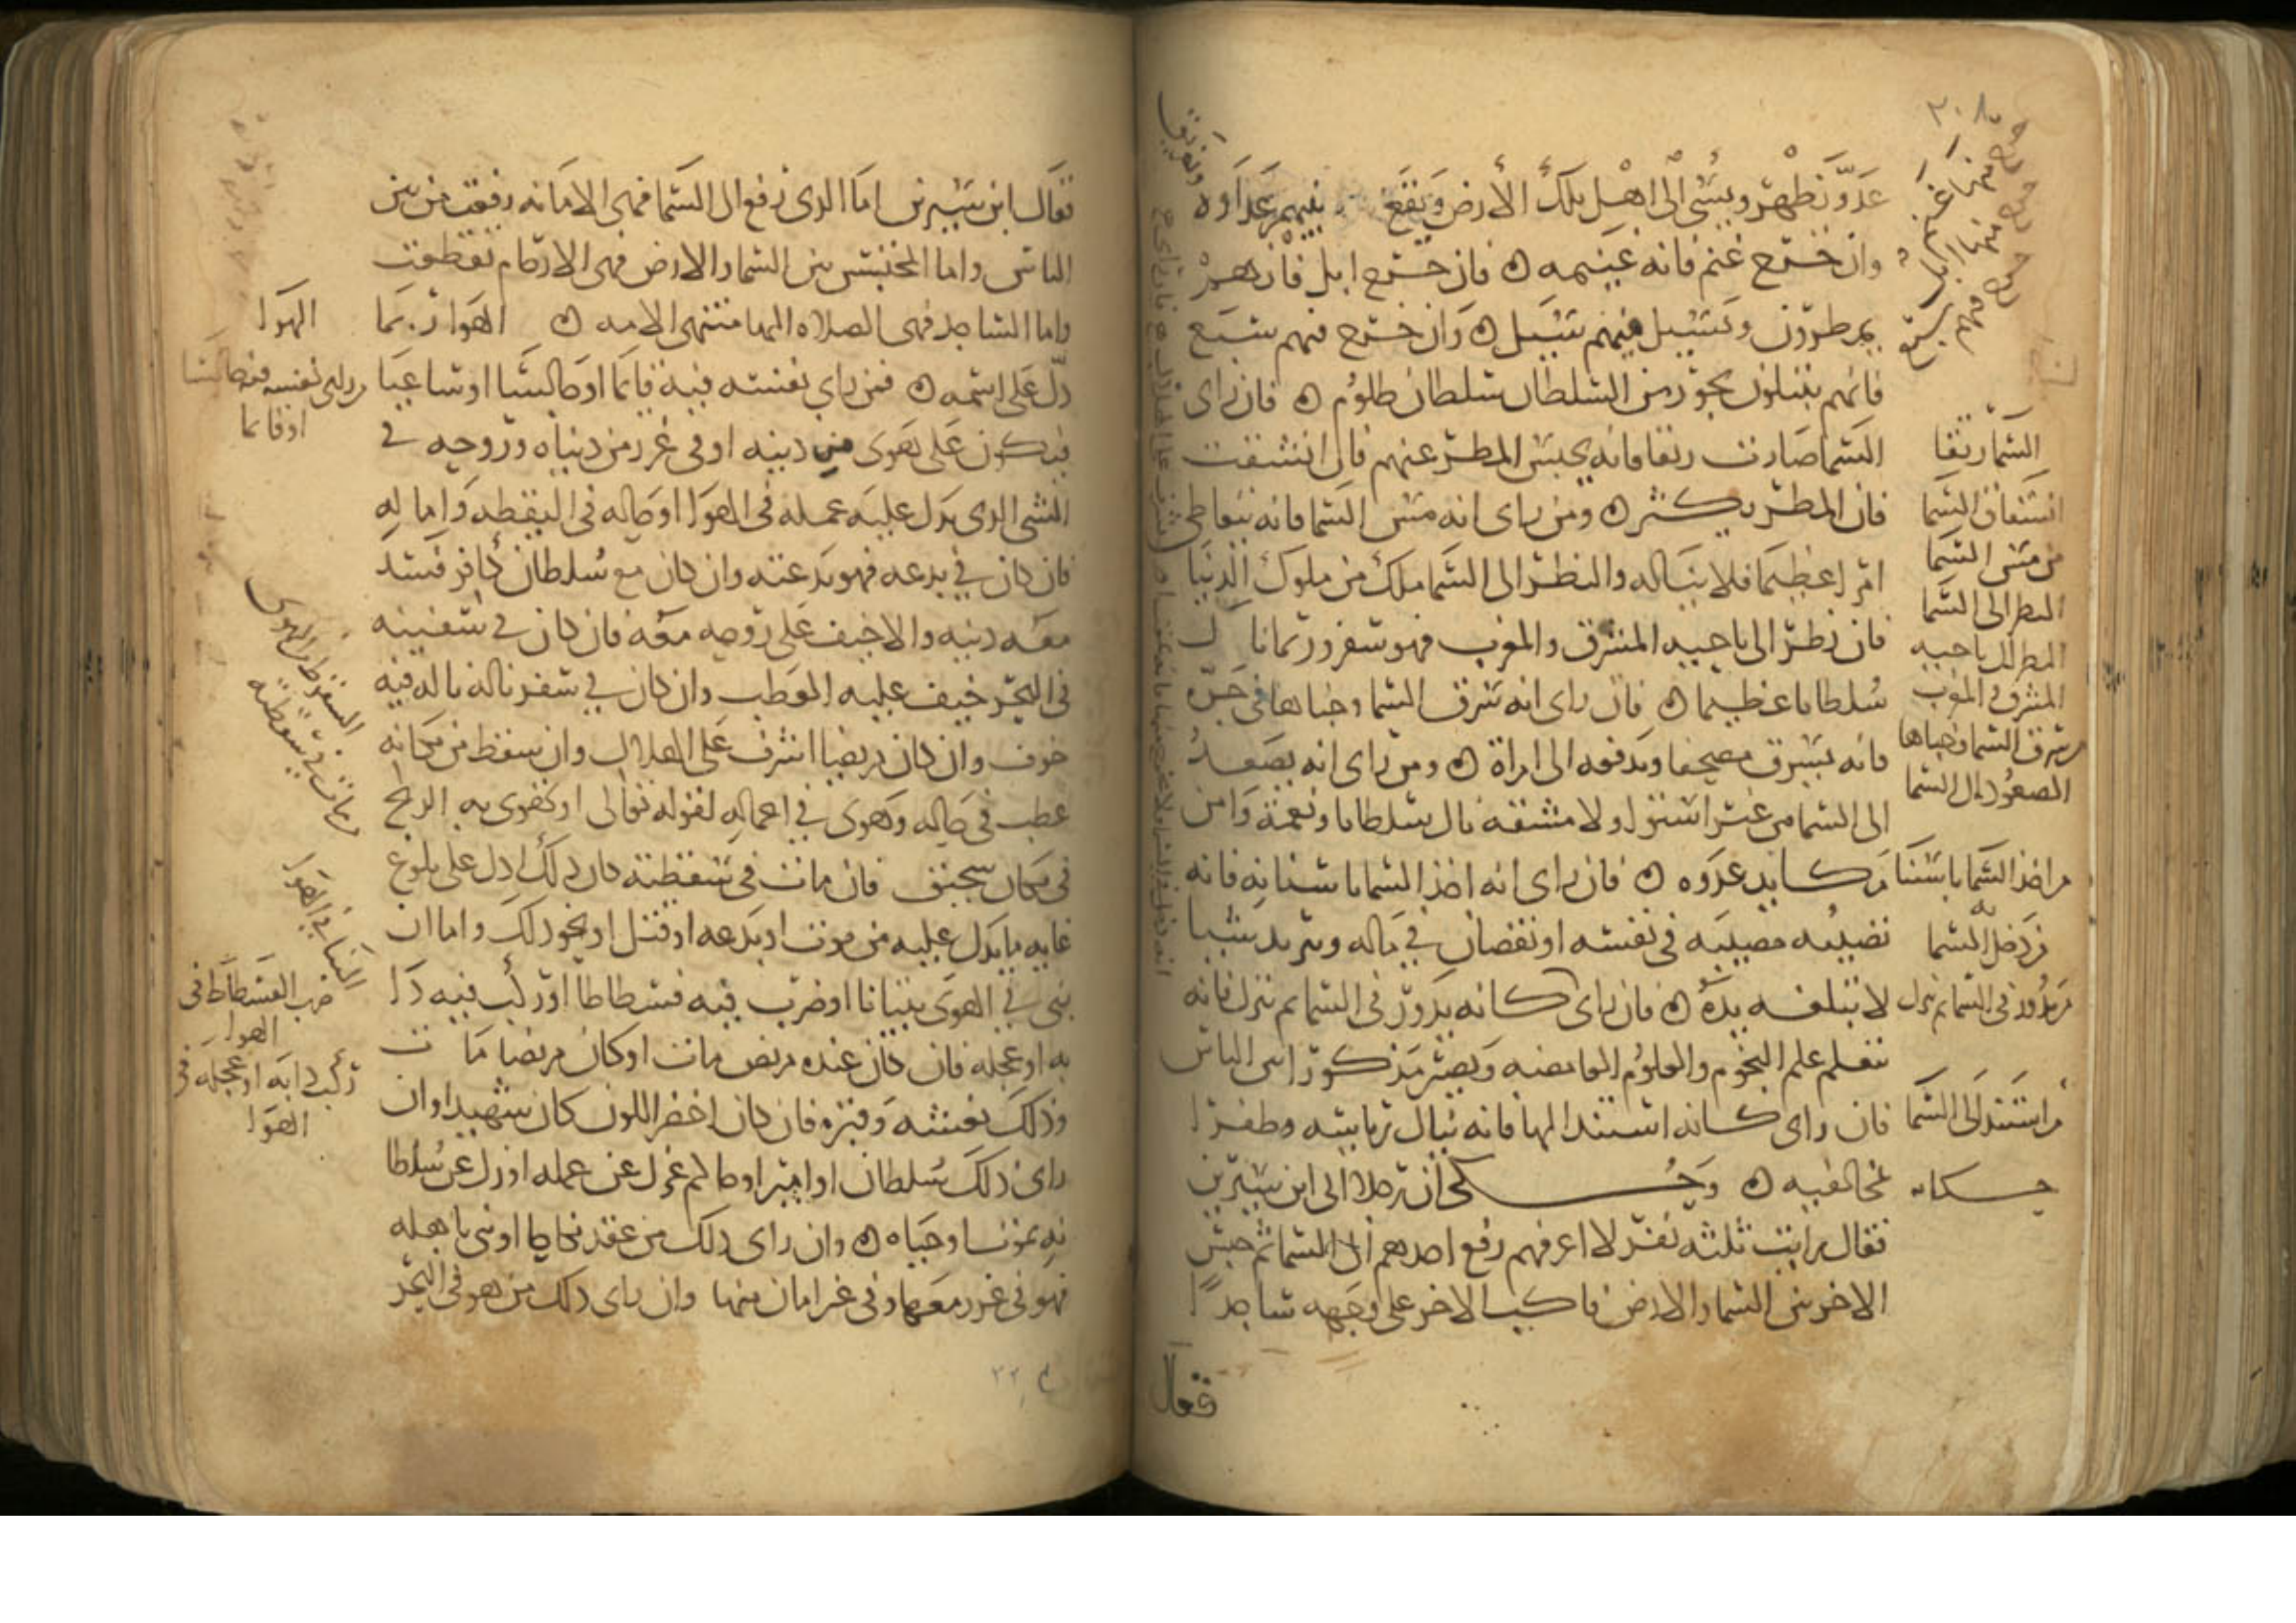 عدو نظهر ويسى الى اهل تلك الأرض وتقع بينهم عداوة
وان خرج غنم فانه غنيمه ۞ فان خرج ابل فانهم
يمطرون ويسيل فيهم سيل ۞ وان خرج فيهم سبع
فانهم يبتلون بجور من السلطان سلطان ظلوم ۞ فان راى
السما صارت رتقا فانه يحبس المطر عنهم فان انشقت
فان المطر يكثر ۞ ومن راى انه مس السما فانه يتعاطى
امرا عظيما فلا يناله والنظر الى السما ملك من ملوك الدنيا
فان نظر الى ناحيه المشرق والمغرب فهو سفر وربما نال
سلطانا عظيما ۞ فان راى انه سرق السما وخباها في جرة
فانه يسرق مصحفا ويدفعه الى امراة ۞ ومن راى انه يصعد
الى السما من غير استوا ولا مشقه نال سلطانا ونعمة وامن
مكايد عدوه ۞ فان راى انه اخذ السما باسنانه فانه
تصيبه مصيبه في نفسه او نقصان في ماله ويريد شيا
لا تبلغه يده ۞ فان راى كانه يدور في السما ثم نزل فانه
يتعلم علم النجوم والعلوم الغامضه ويصير مذكورا بين الناس
فان راى كانه استند اليها فانه ينال رياسه وظفرا
بمخالفيه ۞ وحكى ان رجلا اتى ابن سيرين
فقال رايت ثلثه نفر لا اعرفهم رفع احدهم الى السما ثم حبس
الاخر بين السما والارض فاكب الاخر على وجهه ساجدا
فقال
خرج منها غنم
خرج منها ابل
خرج منهم سبع
السما رتقا
انشقاق السما
من مس السما
النظر الى السما
النظر الى ناحيه
المشرق والمغرب
من سرق السما وخباها
الصعود الى السما
من اخذ السما باسنانه
من دخل السما
من يدور في السما ثم نزل
من استند الى السما
حكايه
فقال ابن سيرين اما الذى رفع الى السما فهى الامانه رفعت من بين
الناس واما المحتبس بين السما والارض فهى الارحام تقطعت
واما الساجد فهى الصلاه اليها منتهى الامه ۞ الهوا ربما
دل على اسمه ۞ فمن راى نفسه فيه قايما او جالسا او ساعيا
فيكون على هوى من دينه او في غرر من دنياه وروحه في
الشى الذى يدل عليه عمله في الهوا او حاله في اليقظه واماله
فان كان في بدعه فهو بدعته وان كان مع سلطان كافر فسد
معه دينه والا خيف على روحه معه فان كان في سفينه
في البحر خيف عليه العطب وان كان في سفر ناله ماله فيه
خوف وان كان مريضا اشرف على الهلاك وان سقط من مكانه
عطب في حاله وهوى في اعماله لقوله تعالى او تهوى به الريح
في مكان سحيق فان مات في سقطته كان ذلك ادل على بلوغ
غايه ما يدل عليه من موت او بدعه او قتل او نحو ذلك واما ان
بنى في الهوى بنيانا او ضرب فيه فسطاطا او ركب فيه دا
به او عجله فان كان عنده مريض مات او كان مريضا مات
وذلك نعشه وقبره فان كان اخضر اللون كان شهيدا وان
راى ذلك سلطان او امير او حاكم عزل عن عمله او زال عن سلطا
نه بموت او حياه ۞ وان راى ذلك من عقد نكاحا او بنى باهله
فهو في غرر معها وفي غير امان منها وان راى ذلك من هو في البحر
الهوا
من راى نفسه فيه جالسا
او قايما
السقوط من الهوى
من مات في سقوطه
البنا في الهوا
ضرب الفسطاط في
الهوا
ركب دابه او عجله في
الهوا